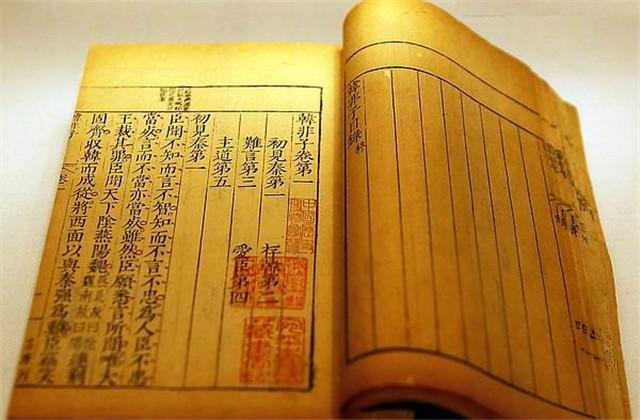 韓非子目錄終
韓非子卷第一
初見秦第一　存韓第二
難言第三　愛臣第四
主道第五
初見秦第一
臣聞不知而言不智知而不言不忠為人臣不忠
當死言而不當亦當死雖然臣願悉言所聞唯大
王裁其罪臣聞天下陰燕陽魏燕北故曰陰魏南故曰陽連荊
固齊收韓而成從將西面以與秦强為難臣竊笑